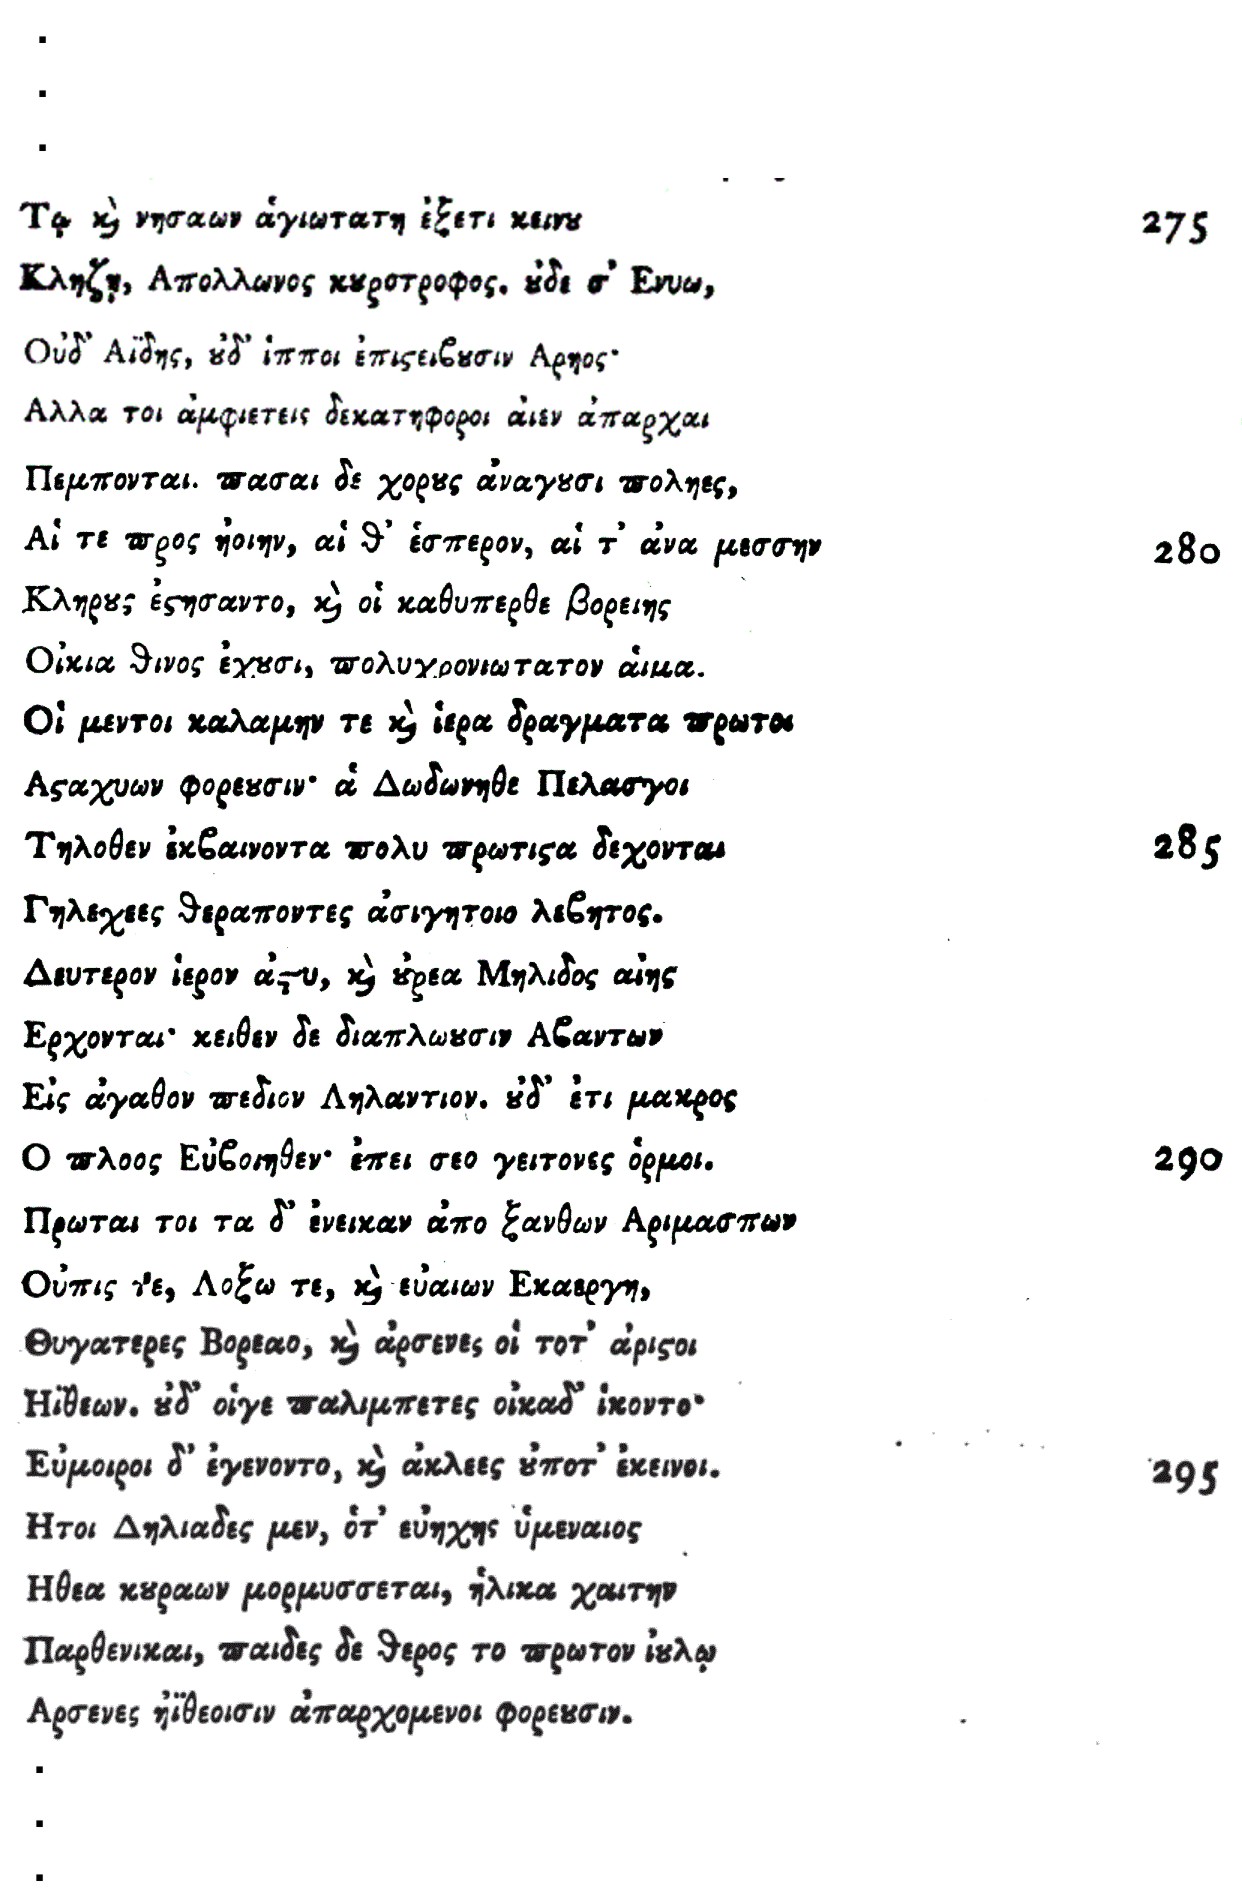 Τῳ ϗ̀ νησαων ἁγιωτατη ἐξετι κεινȣ 275
Κληζῃ, Απολλωνος κȣροτροφος. ȣ̓δε σ' Ενυω,
Οὐδ' Αϊδης, ȣ̓δ' ἱπποι ἐπιϛειβȣσιν Αρηος·
Αλλα τοι ἀμφιετεις δεκατηφοροι ἀιεν ἀπαρχαι
Πεμπονται. ϖασαι δε χορȣς ἀναγȣσι ϖοληες,
Αἱ τε ϖρος ἠοιην, αἱ θ' ἑσπερον, αἱ τ' ἀνα μεσσην 280
Κληρȣς ἐϛησαντο, ϗ̀ οἱ καθυπερθε βορειης
Οἰκια θινος ἐχȣσι, ϖολυχρονιωτατον ἁιμα.
Οἱ μεντοι καλαμην τε ϗ̀ ἱερα δραγματα ϖρωτοι
Αϛαχυων φορεȣσιν· ἁ Δωδωνηθε Πελασγοι
Τηλοθεν ἐκβαινοντα ϖολυ ϖρωτιϛα δεχονται 285
Γηλεχεες θεραποντες ἀσιγητοιο λεβητος.
Δευτερον ἱερον ἀϛυ, ϗ̀ ȣ̓ρεα Μηλιδος αἰης
Ερχονται· κειθεν δε διαπλωȣσιν Αβαντων
Εἰς ἀγαθον ϖεδιον Ληλαντιον. ȣ̓δ' ἐτι μακρος
Ο ϖλοος Εὐβοιηθεν· ἐπει σεο γειτονες ὁρμοι. 290
Πρωται τοι τα δ' ἐνεικαν ἀπο ξανθων Αριμασπων
Οὐπις τε, Λοξω τε, ϗ̀ εὐαιων Εκαεργη,
Θυγατερες Βορεαο, ϗ̀ ἀρσενες οἱ τοτ' ἀριϛοι
Ηϊθεων. ȣ̓δ' οἱγε ϖαλιμπετες οἰκαδ' ἱκοντο·
Εὐμοιροι δ' ἐγενοντο, ϗ̀ ἀκλεες ȣ̓ποτ' ἐκεινοι. 295
Ητοι Δηλιαδες μεν, ὁτ' εὐηχης ὑμεναιος
Ηθεα κȣραων μορμυσσεται, ἡλικα χαιτην
Παρθενικαι, ϖαιδες δε θερος το ϖρωτον ἰȣλῳ
Αρσενες ἠϊθεοισιν ἀπαρχομενοι φορεȣσιν.